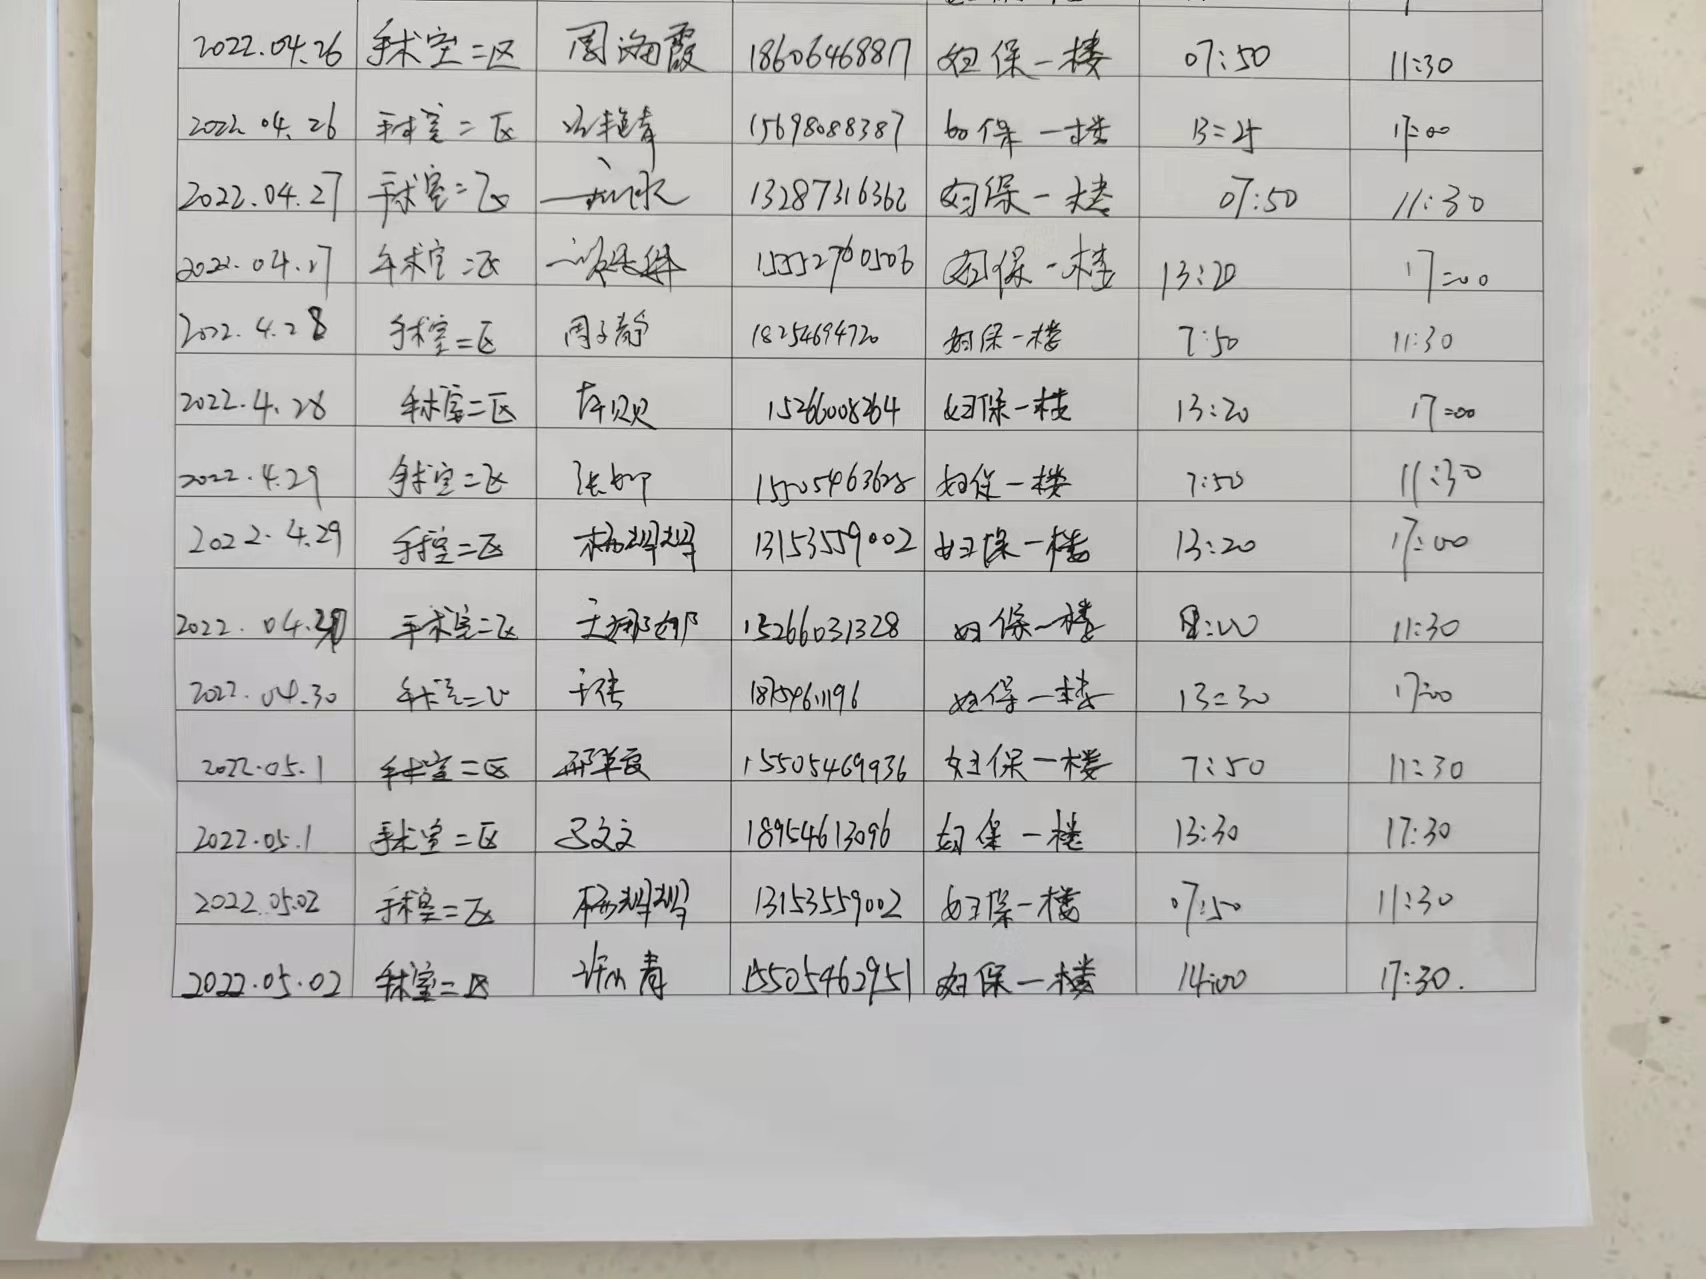 2022.04.26 手术室二区 周海霞 18606468817 妇保一楼 07:50 11:30
2022.04.26 手术室二区 15698088387 妇保一楼 17:00
2022.04.27 手术室二区 13287316362 妇保一楼 07:50 11:30
2022.04.27 手术室二区 15552760506 妇保一楼 13:20 17:00
2022.4.28 手术室二区 周子静 18254694720 妇保一楼 7:50 11:30
2022.4.28 手术室二区 15266008264 妇保一楼 13:20 17:00
2022.4.29 手术室二区 妇保一楼 7:50 11:30
2022.4.29 手术室二区 13153559002 妇保一楼 13:20 17:00
手术室二区 王娜娜 15266031328 妇保一楼 8:00 11:30
2022.04.30 手术室二区 妇保一楼 13:30 17:00
2022.05.1 手术室二区 15505469936 妇保一楼 7:50 11:30
2022.05.1 手术室二区 吕文文 18954613096 妇保一楼 13:30 17:30
2022.05.02 手术室二区 13153559002 妇保一楼 07:50 11:30
2022.05.02 手术室二区 15505462951 妇保一楼 14:00 17:30.